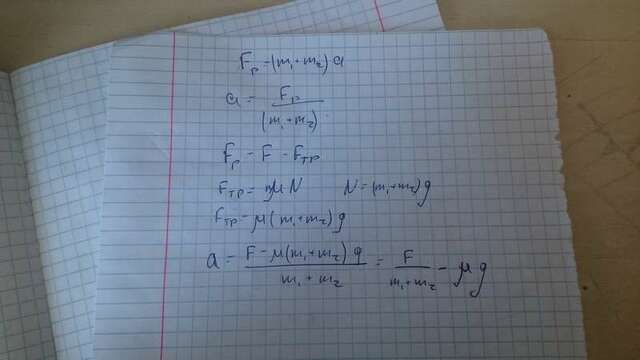 Fр = (m₁+m₂) a
a = Fр / (m₁+m₂)
Fр = F - Fтр
Fтр = μ N N = (m₁+m₂)g
Fтр = μ(m₁+m₂)g
a = (F - μ(m₁+m₂)g) / (m₁+m₂) = F / (m₁+m₂) - μg